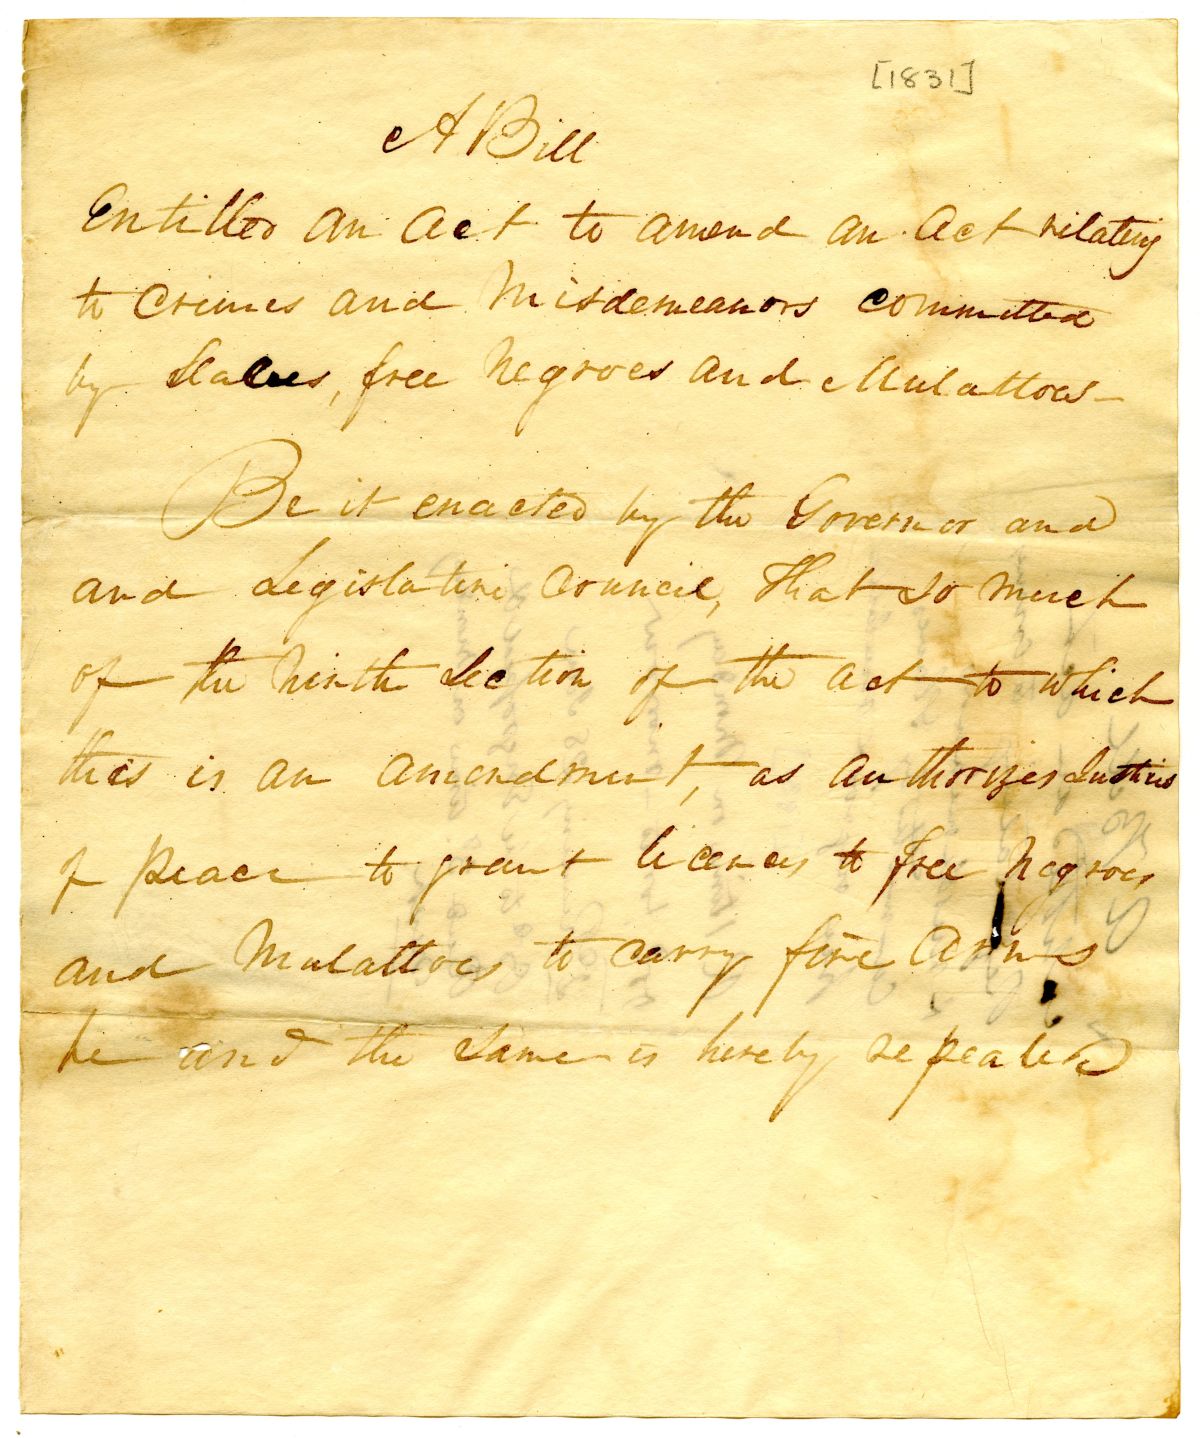 [1831]
A Bill
Entitled an act to amend an act relating
to Crimes and Misdemeanors committed
by Slaves, free Negroes and Mulattoes-
Be it enacted by the Governor, and
and Legislative Council, That so much
of the Ninth Section of the act to which
this is an amendment, as authorizes Justices
of Peace to grant licences to free Negroes
and Mulattoes to carry fire arms
be and the same is hereby repealed